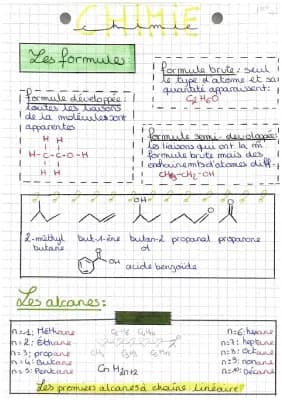 CHIMIE
chimie
Les formules
formule brute: seul
le type d'atome et sa
quantité apparaissent:
C₂H₆O
formule développée:
toutes les liaisons
de la molécule sont
apparentes
H H
H-C-C-O-H
H H
formule semi-développée:
les liaisons qui ont la m̂
formule brute mais des
d'atomes diff.
CH₃-CH₂-OH
OH
O
O
2-méthyl
butane
but-1-ène
butan-2
ol
propanal
propanone
O
OH
acide benzoïde
Les alcanes:
n=1: Méthane
n=2: Éthane
n=3: propane
n=4: Butane
n=5: Pentane
CH₄
CnH2n+2
n=6: hexane
n=7: heptane
n=8: Octane
n=9: nonane
n=10: Décane
Les premiers alcanes à chaîne linéaire